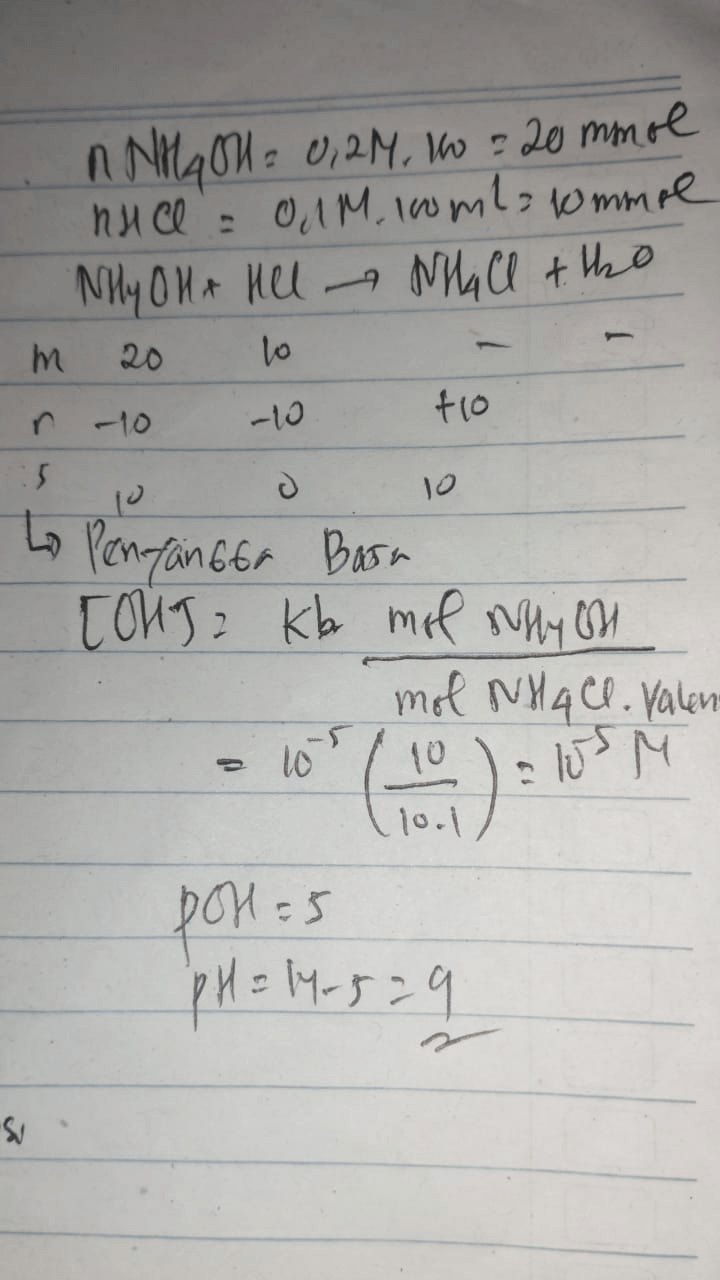 n NH4OH = 0,2M. 100 = 20 mmol
nHCl = 0,1M. 100ml = 10 mmol
NH4OH + HCl → NH4Cl + H2O
m 20 10 - -
r -10 -10 +10
s 10 0 10
↳ Penyangga Basa
[OH] = Kb mol NH4OH
mol NH4Cl. Valen
= 10^-5 (10/10.1) = 10^-5 M
pOH = 5
pH = 14-5 = 9